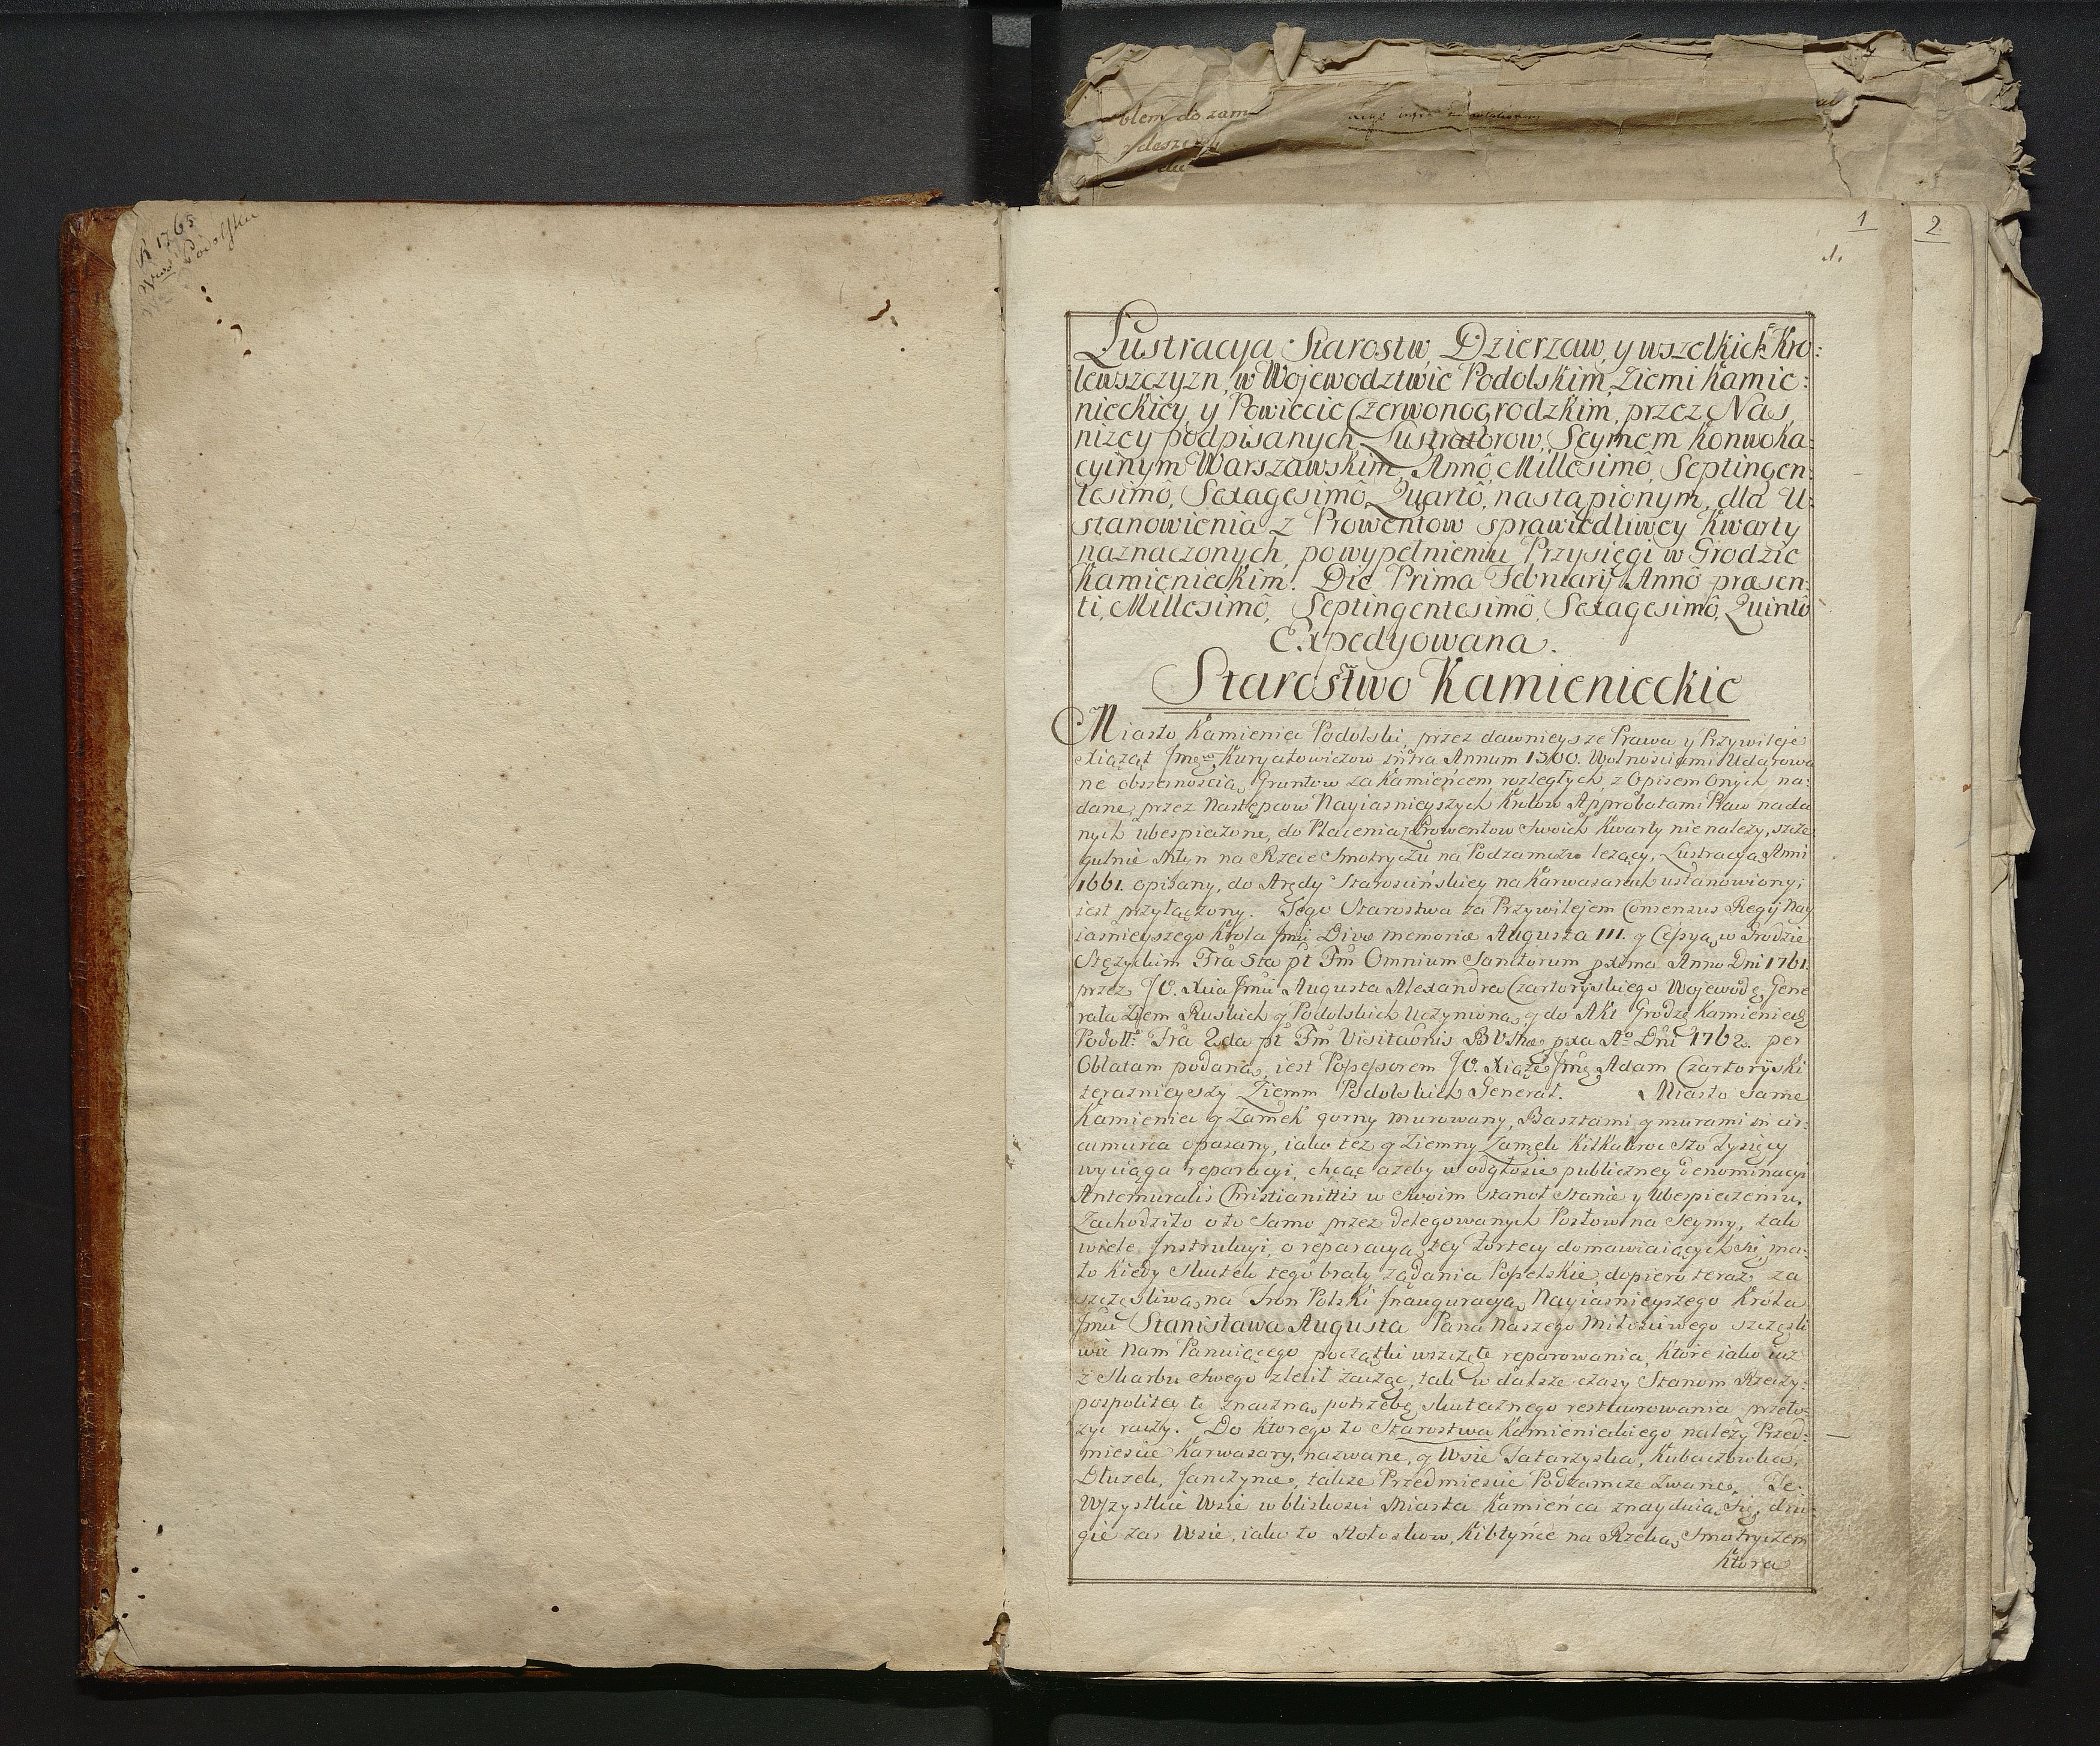 R 1765
Wwo Podolskie
blem do zam
1
2
1.
Lustracya Starostw, Dzierzaw, y wszelkich Kro:
lewszczyzn, w Wojewodztwie Podolskim, Ziemi Kamie:
nieckiey y Powiecie Czerwonogrodzkim, przez Nas
nizey podpisanych Lustratorow, Seymem Konwoka:
cyinym Warszawskim, Annô Millesimô, Septingen:
tesimô, Sexagesimô Quartô, nastąpionym, dla U:
stanowienia z Prowentow sprawiedliwey Kwarty
naznaczonych, po wypełnieniu Przysięgi w Grodzie
Kamienieckim. Die Prima Februarij Annô præsen:
ti, Millesimô, Septingentesimô, Sexagesimô, Quintô
Expedyowana.
Starostwo Kamienieckie
Miasto Kamieniec Podolski, przez dawnieysze Prawa y Przywileje
Xiążąt Kuryatowiczow infra Annum 1300. Wolnosciami Udarowa
ne obszernoscią Gruntow za Kamieńcem rozległych, z Opisem Onych na:
dane, przez Następcow Nayiasnieyszych Krolow Approbatami Praw nada
nych ubespieczone, do Płacenia z Prowentow Swoich Kwarty nie nalezy, szcze
gulnie Młyn na Rzece Smotryczu na Podzamczu lezący, Lustracyą Anni
1661. opisany, do Arędy Starościńskiey na Karwasarach ustanowiony,
iest przyłączony. Tego Starostwa za Przywilejem Consensus Regij Nay
iasnieyszego Krola Jmci Divæ memoriæ Augusta III. y Cessyą w Grodzie
Stężyckim Fra 5ta pt Fm Omnium Sanctorum pxima Anno Dni 1761.
przez J.O. Xcia Jmci Augusta Alexandra Czartoryskiego Wojewodę Gene
rała Ziem Ruskich y Podolskich Uczynioną, y do Akt Grodz: Kamienieck:
Podoll: Fra 2da pt Fm Visitaonis B V Mæ pxa Ao Dni 1762. per
Oblatam podaną, iest Possessorem J.O. Xiąże Jmć Adam Czartoryski
teraznieyszy Ziemm Podolskich Generał. Miasto same
Kamieniec y Zamek gorny murowany, Basztami y murami in cir:
cumferia opasany, iako też y Ziemny Zamek Kilkakroć Sto Tysięcy
wyciąga reparacyi, chcąc azeby w odgłosie publiczney denominacyi
Antemuralis Christianittis w Swoim stanoł Stanie y Ubespieczeniu,
Zachodziło o to Samo przez delegowanych Posłow na Seymy, tak
wiele Instrukcyi, o reparacyą tey fortecy domawiaiących się, ma:
ło kiedy skutek tego brały ządania Poselskie, dopiero teraz za
szczęsliwą na Tron Polski Inauguracyą Nayiasnieyszego Króla
Jmci Stanisława Augusta Pana Naszego Miłosciwego szczęsli
wie Nam Panuiącego początki wszczęte reparowania, ktore iako iuz
z Skarbu Swego zlecił zacząć, tak w dalsze czasy Stanom Rzeczy:
pospolitey tę znaczną potrzebę skutecznego restaurowania przeło:
zyć raczy. Do ktorego to Starostwa Kamienieckiego nalezy Przed:
miescie Karwasary, nazwane, y Wsie Tatarzyska, Kubaczowka,
Dłuzek, Janczynce, takze Przedmiescie Podzamcze zwane. Te
Wszystkie Wsie w bliskosci Miasta Kamieńca znayduią się, dru:
gie zas Wsie, iako to Hołoskow, Kibłyńce na Rzeką Smotryczem
ktora